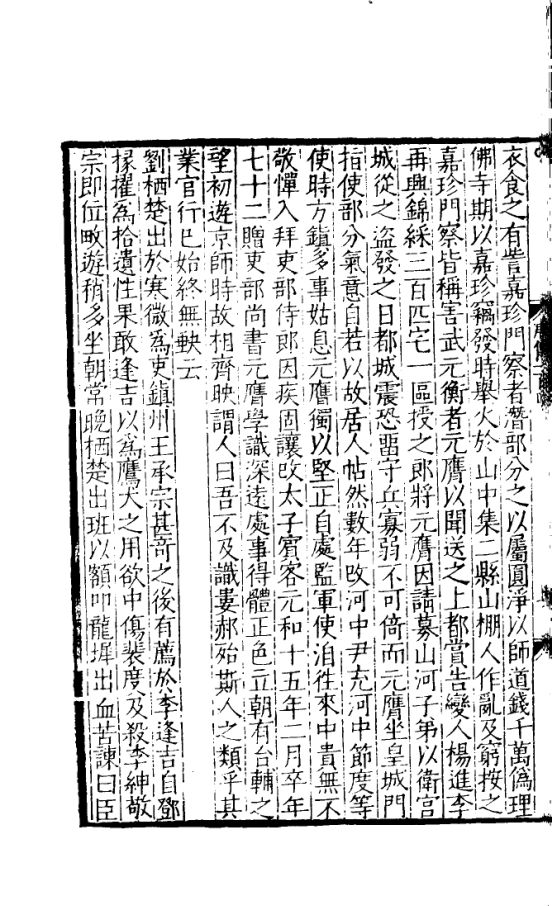 衣食之有訾嘉珍門察者潛部分之以屬圓淨以師道錢千萬僞理
佛寺期以嘉珍竊發時舉火於山中集二縣山棚人作亂及窮按之
嘉珍門察皆稱害武元衡者元膺以聞送之上都賞告變人楊進李
再興錦綵三百匹宅一區授之郎將元膺因請募山河子弟以衛宮
城從之盜發之日都城震恐留守兵寡弱不可倚而元膺坐皇城門
指使部分氣意自若以故居人帖然數年改河中尹充河中節度等
使時方鎮多事姑息元膺獨以堅正自處監軍使洎往來中貴無不
敬憚入拜吏部侍郎因疾固讓改太子賓客元和十五年二月卒年
七十二贈吏部尚書元膺學識深遠處事得體正色立朝有台輔之
望初遊京師時故相齊映謂人曰吾不及識婁郝殆斯人之類乎其
業官行巳始終無缺云
劉栖楚出於寒微爲吏鎮州王承宗甚奇之後有薦於李逢吉自鄧
掾擢爲拾遺性果敢逢吉以爲鷹犬之用欲中傷裴度及殺李紳敬
宗即位畋遊稍多坐朝常晚栖楚出班以額叩龍墀出血苦諫曰臣